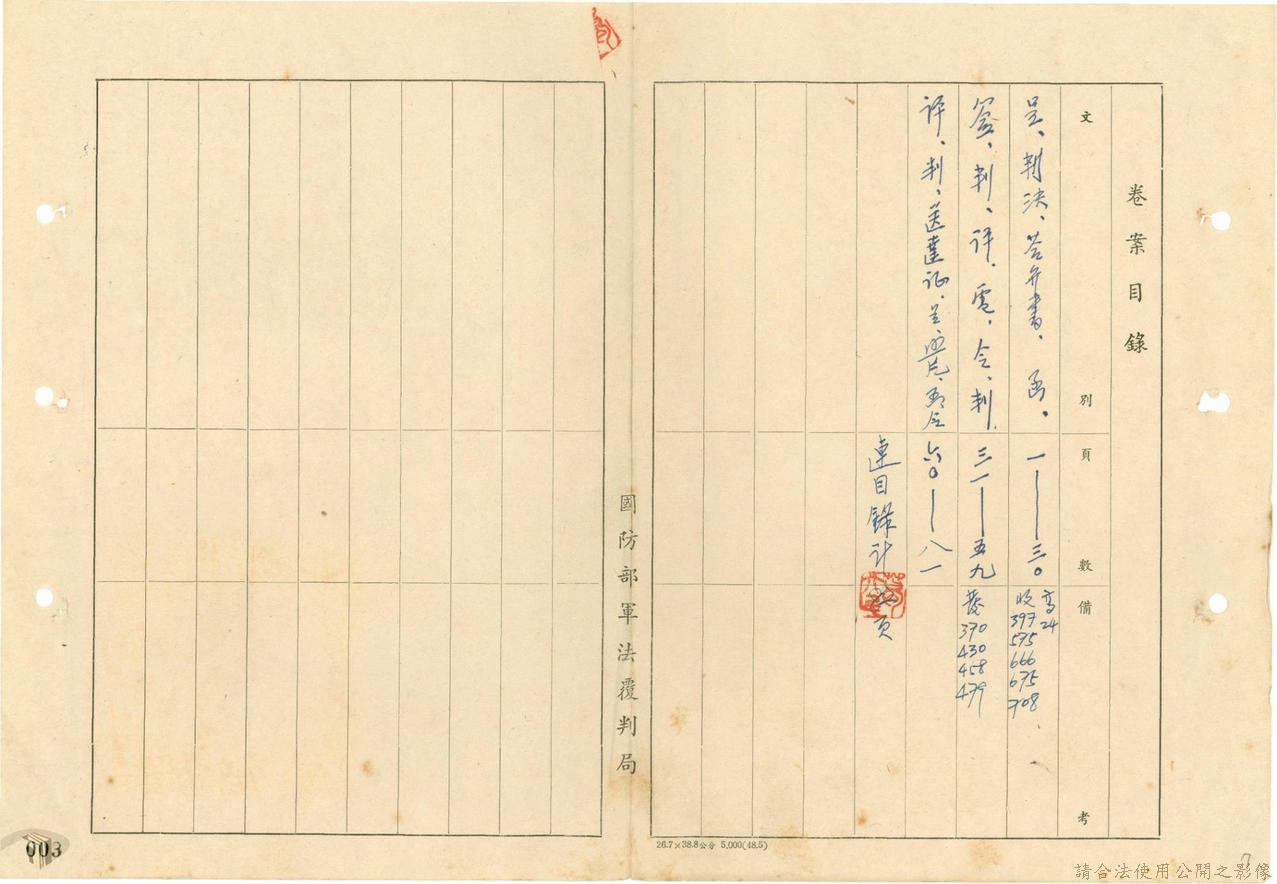 卷案目錄
文別
頁數
備考
呈、判決、答弁書、函。
一——三〇
高24
收397
575
666
675
708
簽、判、評、電、令、判
三一——五九
發370
430
458
479
評、判、送達証、呈
六〇——八一
連目錄計
頁
國防部軍法覆判局
26.7×38.8公分 5,000(48.5)
003
7
請合法使用公開之影像